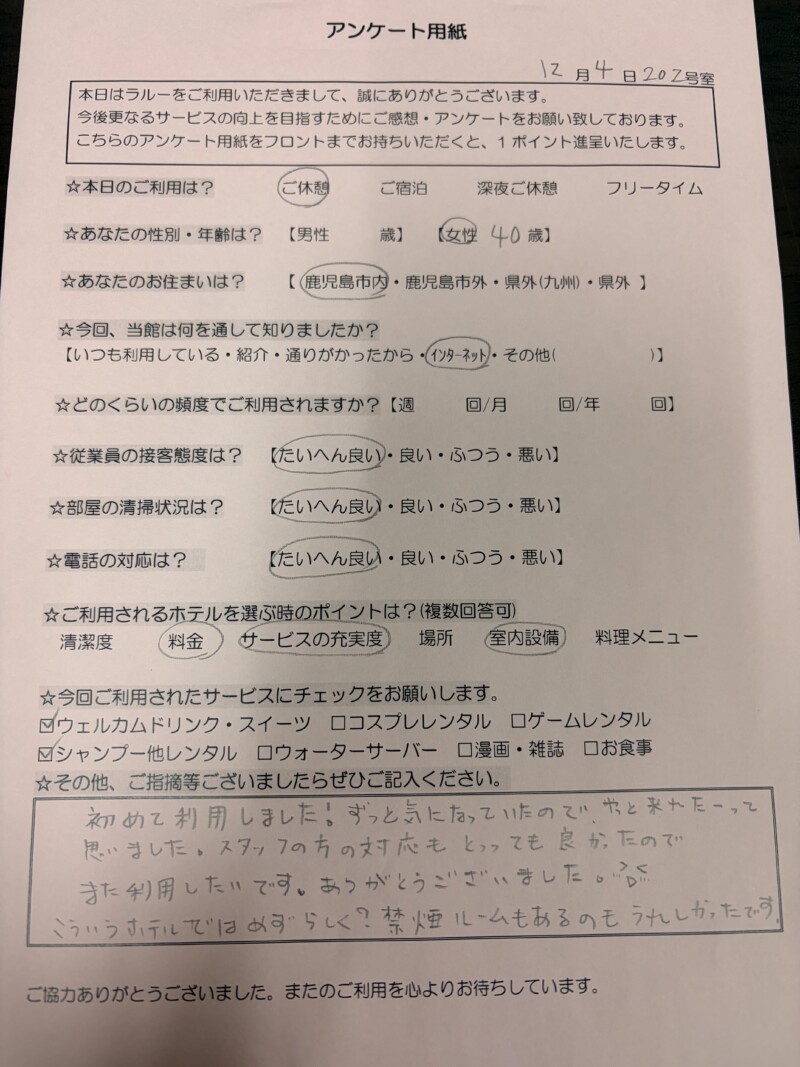 アンケート用紙
12月4日202号室
本日はラルーをご利用いただきまして、誠にありがとうございます。
今後更なるサービスの向上を目指すためにご感想・アンケートをお願い致しております。
こちらのアンケート用紙をフロントまでお持ちいただくと、1ポイント進呈いたします。
☆本日のご利用は? ご休憩 ご宿泊 深夜ご休憩 フリータイム
☆あなたの性別・年齢は? 【男性 歳】 【女性 40歳】
☆あなたのお住まいは? 【 鹿児島市内・鹿児島市外・県外(九州)・県外 】
☆今回、当館は何を通して知りましたか?
【いつも利用している・紹介・通りがかったから・インターネット・その他( )】
☆どのくらいの頻度でご利用されますか?【週 回/月 回/年 回】
☆従業員の接客態度は? 【たいへん良い・良い・ふつう・悪い】
☆部屋の清掃状況は? 【たいへん良い・良い・ふつう・悪い】
☆電話の対応は? 【たいへん良い・良い・ふつう・悪い】
☆ご利用されるホテルを選ぶ時のポイントは?(複数回答可)
清潔度 料金 サービスの充実度 場所 室内設備 料理メニュー
☆今回ご利用されたサービスにチェックをお願いします。
☑ウェルカムドリンク・スイーツ □コスプレレンタル □ゲームレンタル
☑シャンプー他レンタル □ウォーターサーバー □漫画・雑誌 □お食事
☆その他、ご指摘等ございましたらぜひご記入ください。
初めて利用しました!ずっと気になっていたので、やっと来れたーって
思いました。スタッフの方の対応もとっっても良かったので
また利用したいです。ありがとうございました。
こういうホテルではめずらしく?禁煙ルームもあるのもうれしかったです。
ご協力ありがとうございました。またのご利用を心よりお待ちしています。